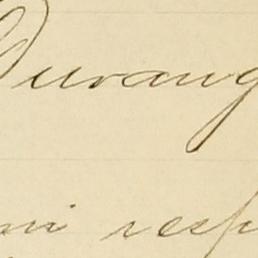 Durang
mi resp